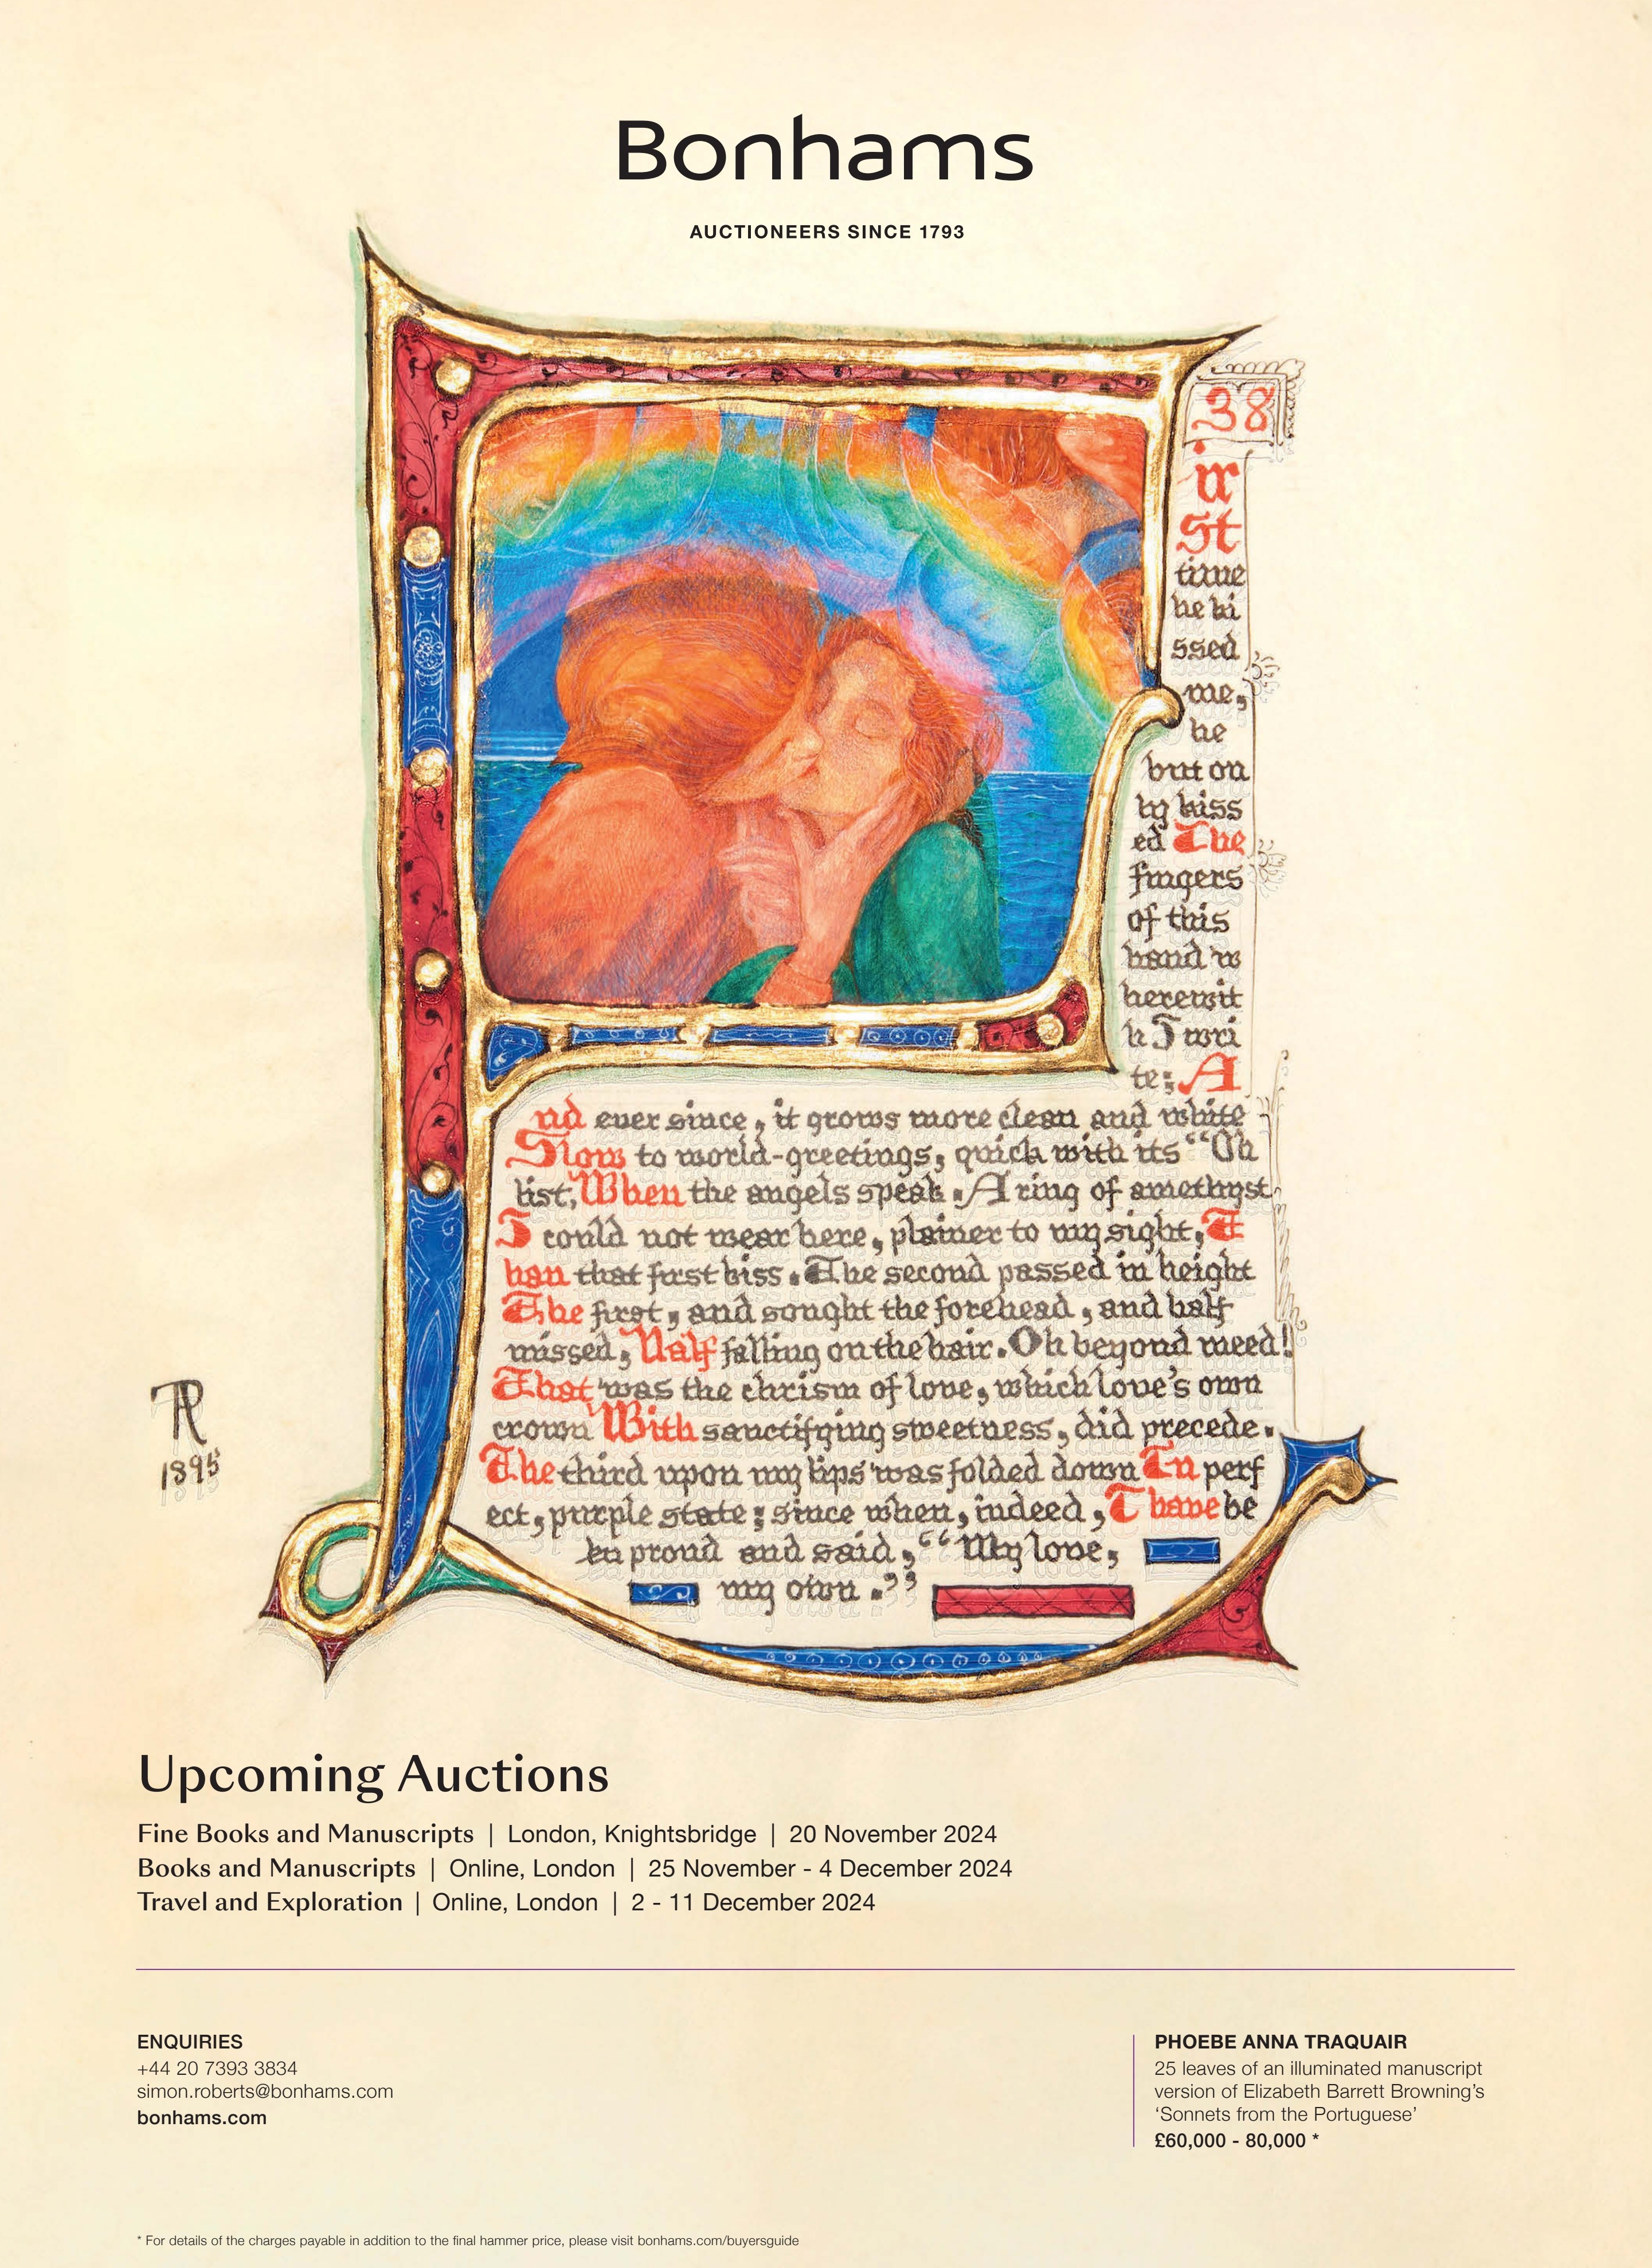 Bonhams
AUCTIONEERS SINCE 1793
38
ir
st
time
he ki
ssed
me,
he
but on
ly kiss
ed The
fingers
of this
hand w
herewit
h I wri
te: A
nd ever since, it grows more clean and white
Slow to world-greetings, quick with its “Oh
list, When the angels speak. A ring of amethyst
I could not wear here, plainer to my sight, T
han that first kiss. The second passed in height
The first, and sought the forehead, and half
missed, Half falling on the hair. Oh beyond meed!
That was the chrism of love, which love's own
crown With sanctifying sweetness, did precede.
The third upon my lips was folded down In perf
ect, purple state: since when, indeed, I have be
en proud and said, “My love,
my own.”
1895
Upcoming Auctions
Fine Books and Manuscripts | London, Knightsbridge | 20 November 2024
Books and Manuscripts | Online, London | 25 November - 4 December 2024
Travel and Exploration | Online, London | 2 - 11 December 2024
ENQUIRIES
+44 20 7393 3834
simon.roberts@bonhams.com
bonhams.com
PHOEBE ANNA TRAQUAIR
25 leaves of an illuminated manuscript
version of Elizabeth Barrett Browning’s
‘Sonnets from the Portuguese’
£60,000 - 80,000 *
* For details of the charges payable in addition to the final hammer price, please visit bonhams.com/buyersguide